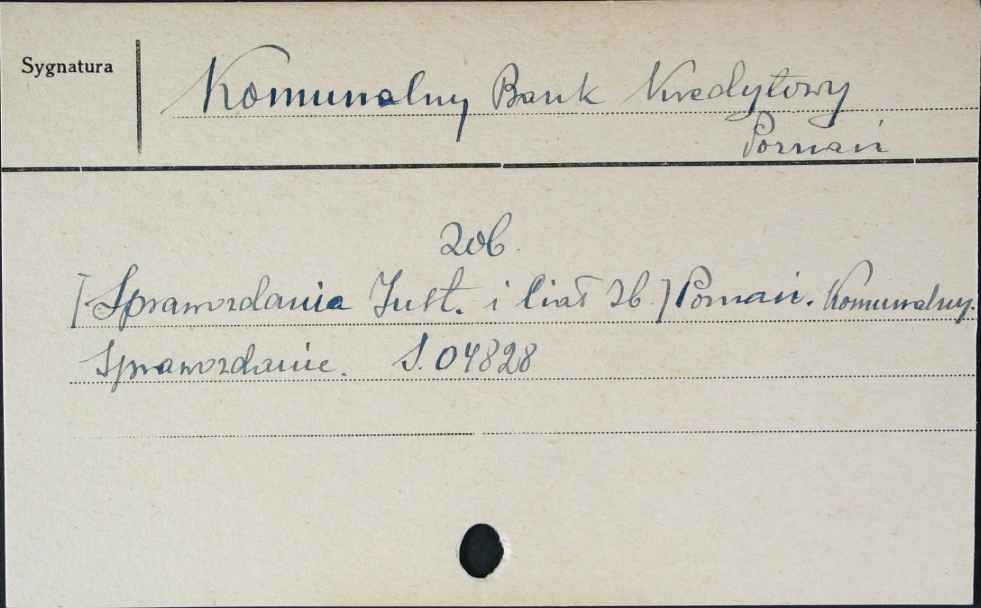 Sygnatura
Komunalny Bank Kredytowy
Poznań
Zob.
[Sprawozdania Inst. i Ciał Zb.] Poznań. Komunalny.
Sprawozdanie. S. 04828